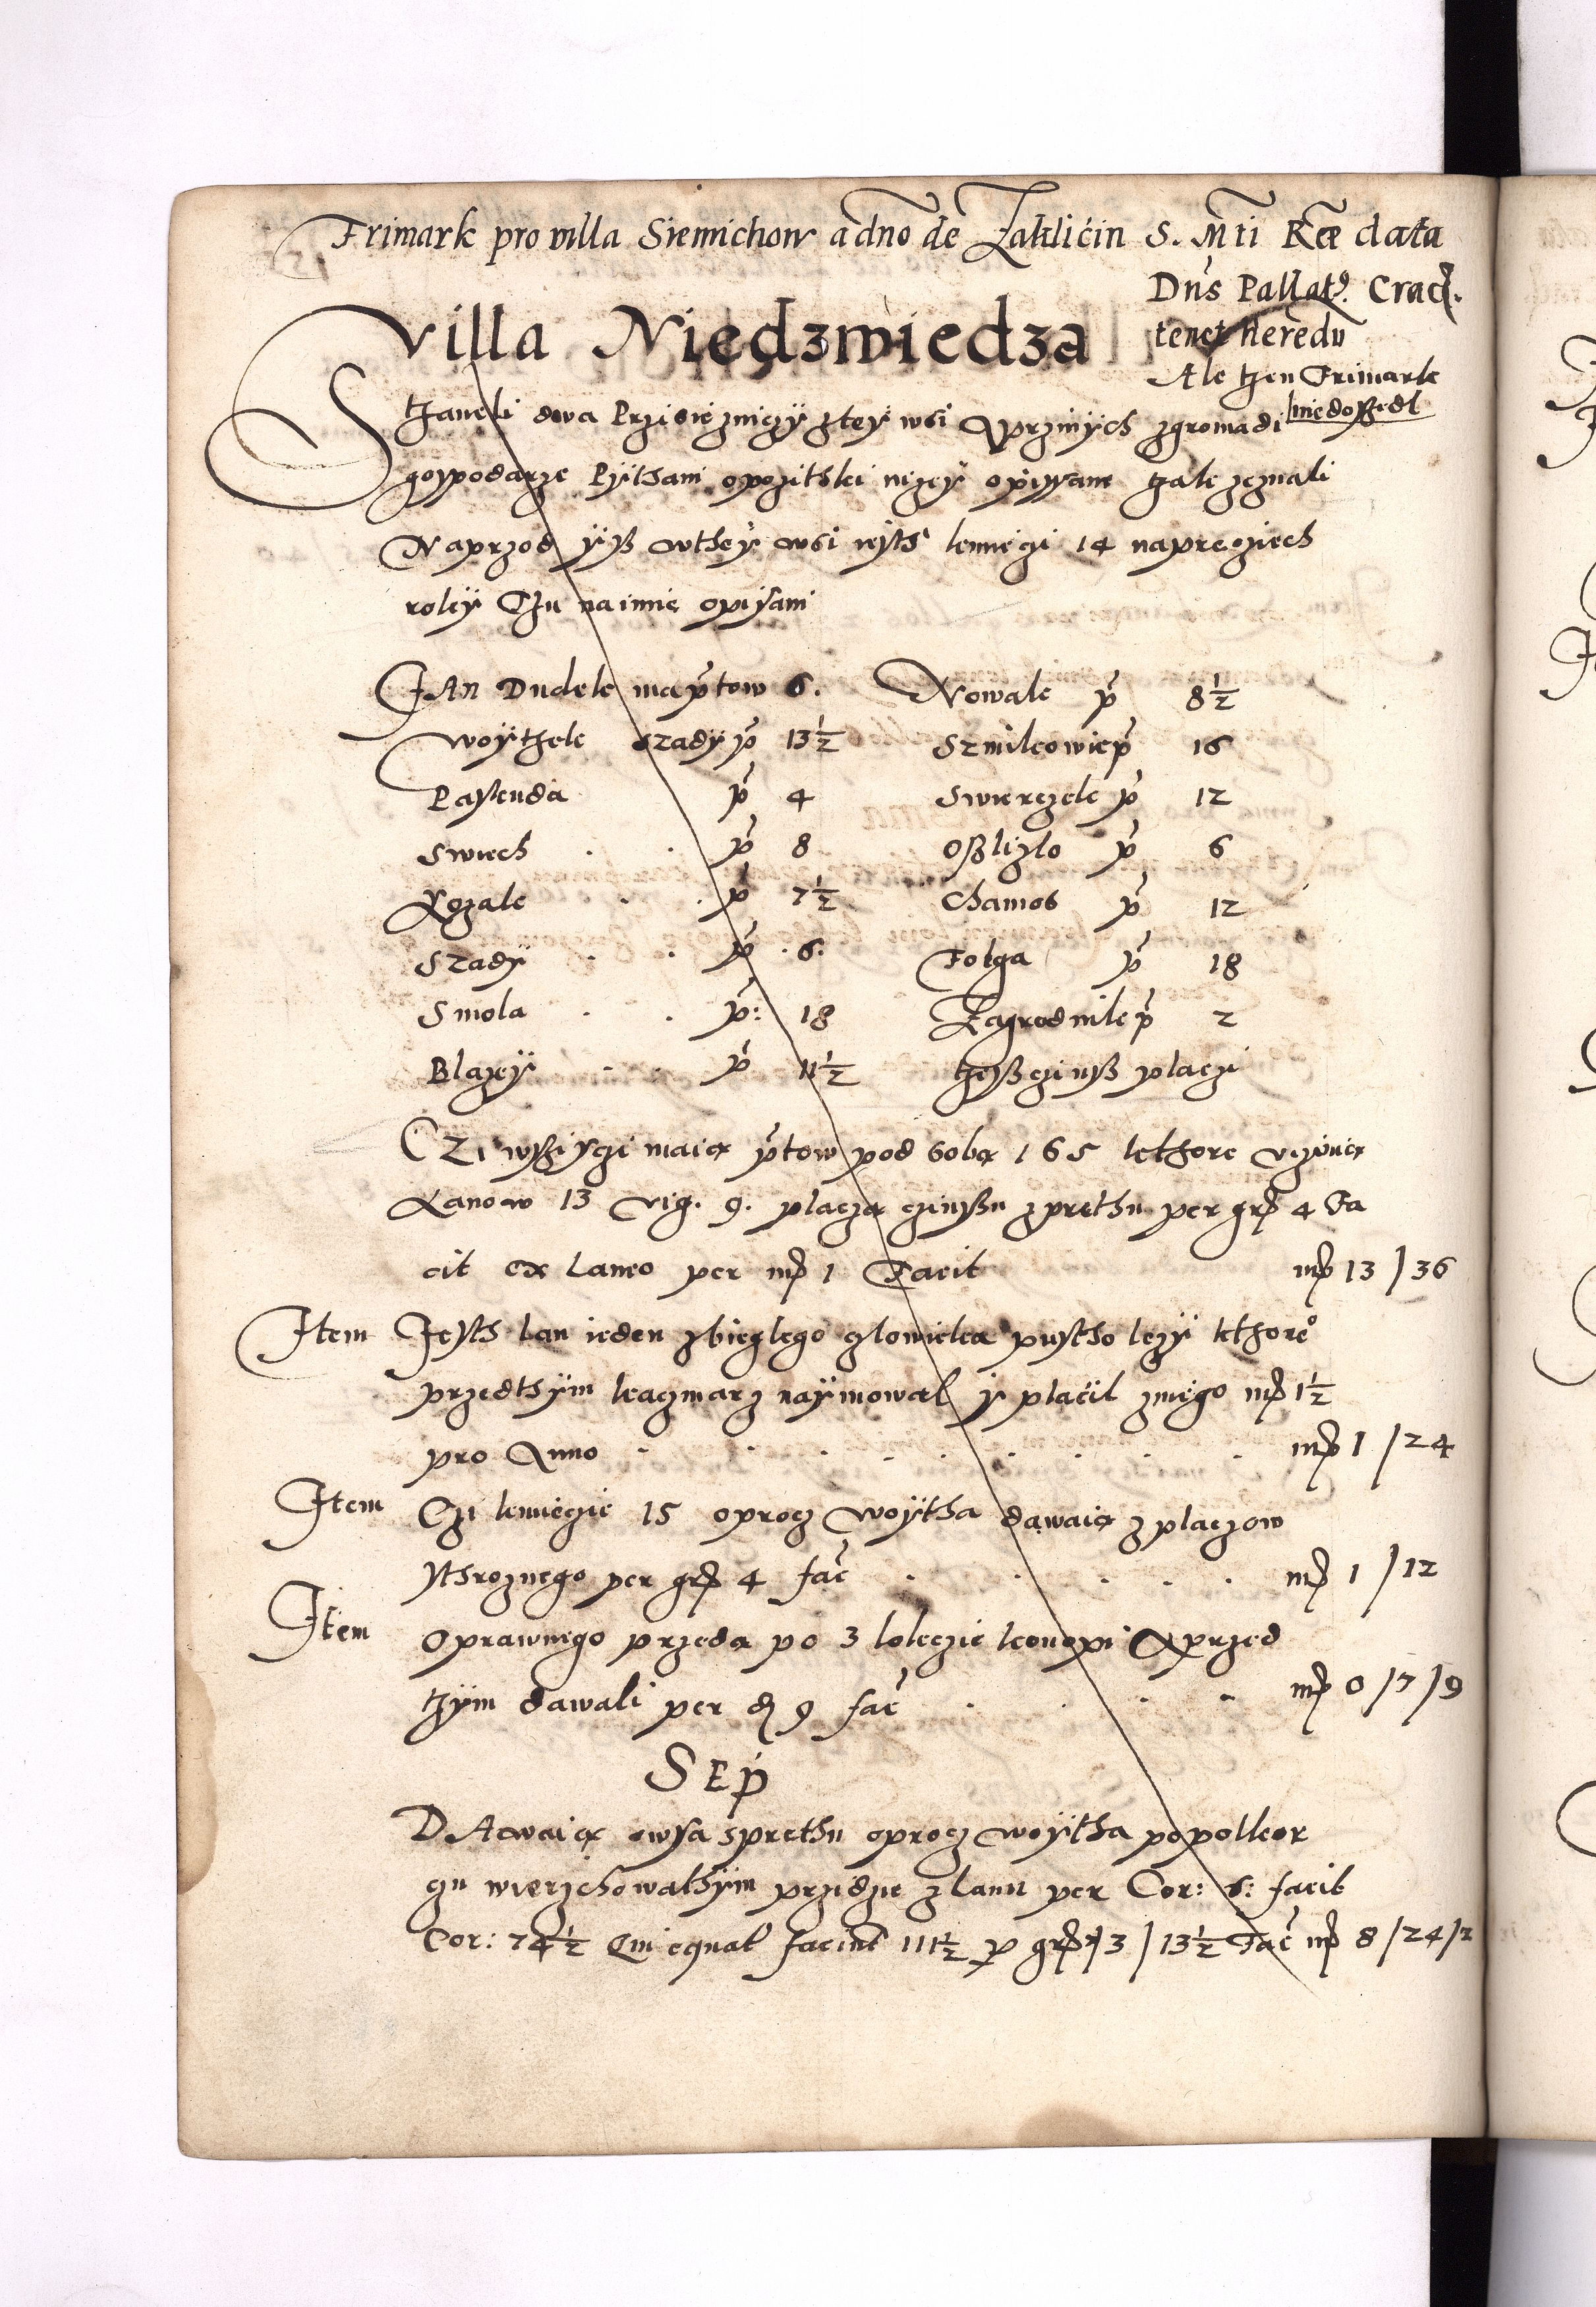 Frimark pro villa Siemichow a dno de Zakliċin S. Mti Rae data
Dns Pallat9. Crac.
tenet heredu
Ale tzen Frimark
niedoszedl
Villa Niedzwiedza
Stzaneli dwa Przisiezniczÿ ztey wsi
gospodarze Pÿthani opozithki nizeÿ opissane tak zeznali
Naprzod ÿsz wtheÿ wsi iesth kmieczi 14 napreciech
roleÿ Czu naimie opisani
JAn Dudek ma p̃tow 6. Nowak p̃ 8 1/2
Woÿtzek Szady p̃ 13 1/2 Szmilkowic p̃ 16
Paskuda p̃ 4 Swierczek p̃ 12
Swiech . . p̃ 8 Oszlizlo p̃ 6
Kozak . . p̃ 7 1/2 Chamos p̃ 12
Szadÿ . . p̃ .6. Folga p̃ 18
Smola . . p̃: 18 Zagrodnik p̃ 2
Blazeÿ . . p̃ 11 1/2 tzesz czinsz placzi
CZi wszisczi maia p̃tow pod soba 165 kthore vczinia
Lanow 13 vig. 9. placza czinszu zprethu per gr 4 Fa
cit ex laneo per mr 1 Facit mr 13 / 36
Item Jesth lan ieden zbieglego czlowieka pustho lezÿ kthore°
przedthÿm kaczmarz naÿmowal ÿ placil zniego mr 1 1/2
pro Anno . . . . . . . . . mr 1 / 24
Item Czi kmieczie 15 oprocz Woÿtha dawaia z placzow
sthroznego per gr 4 fac̃ . . . . . mr 1 / 12
Item Oprawnego przeda po 3 lokczie konopi A przed
tzÿm dawali per d 9 fac̃ . . . . mr 0 / 7 / 9
SEp
DAwaia owsa sprethu oprocz woÿtha po polkor
czu wierzchowathÿm przidzie z lanu per Cor: 6: facit
Cor: 74 1/2 Qui equat facint 111 1/2 p gr 3 / 13 1/2 Fac̃ mr 8 / 24 / 2